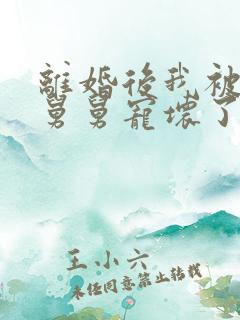 離婚後我被
舅舅寵壞了
王小六
未經同意禁止轉載